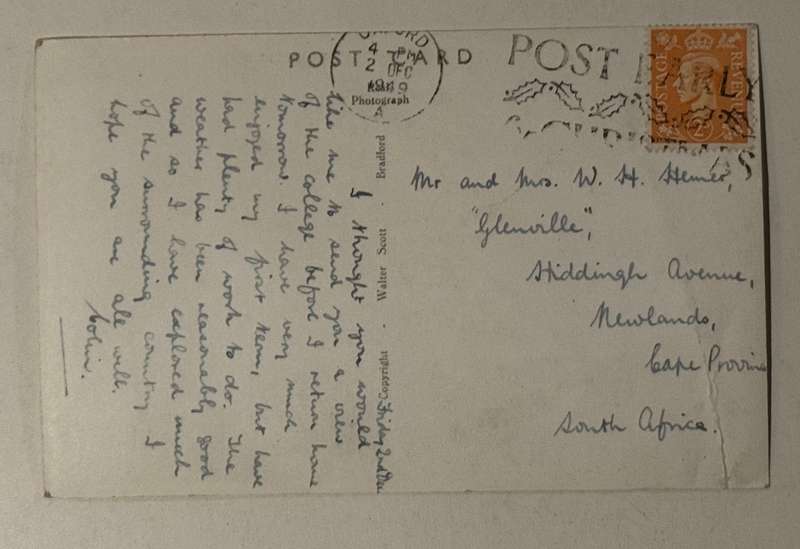 POST CARD
OXFORD
4 PM
2 DEC
1949
A
Real
Photograph
POST EARLY
FOR CHRISTMAS
POSTAGE
REVENUE
Copyright · Walter Scott · Bradford
Friday 2nd Dec
I thought you would
like me to send you a view
of the college before I return home
tomorrow. I have very much
enjoyed my first term, but have
had plenty of work to do. The
weather has been reasonably good
and so I have explored much
of the surrounding country. I
hope you are all well.
Colin.
Mr and Mrs. W. H. Hemer,
"Glenville",
Hiddingh Avenue,
Newlands,
Cape Provin
South Africa.